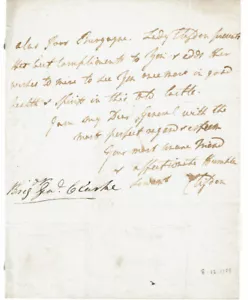 also Your Burgogne. Lady Clifden presents
her best compliments to You & adds her
wishes to mine to see You once more in good
health & spirits in this
I am my Dear General with the
most perfect regard & esteem
Your most sincere Friend
& affectionate Humble
Servant Clifden
Brigr. Genl. Clarke